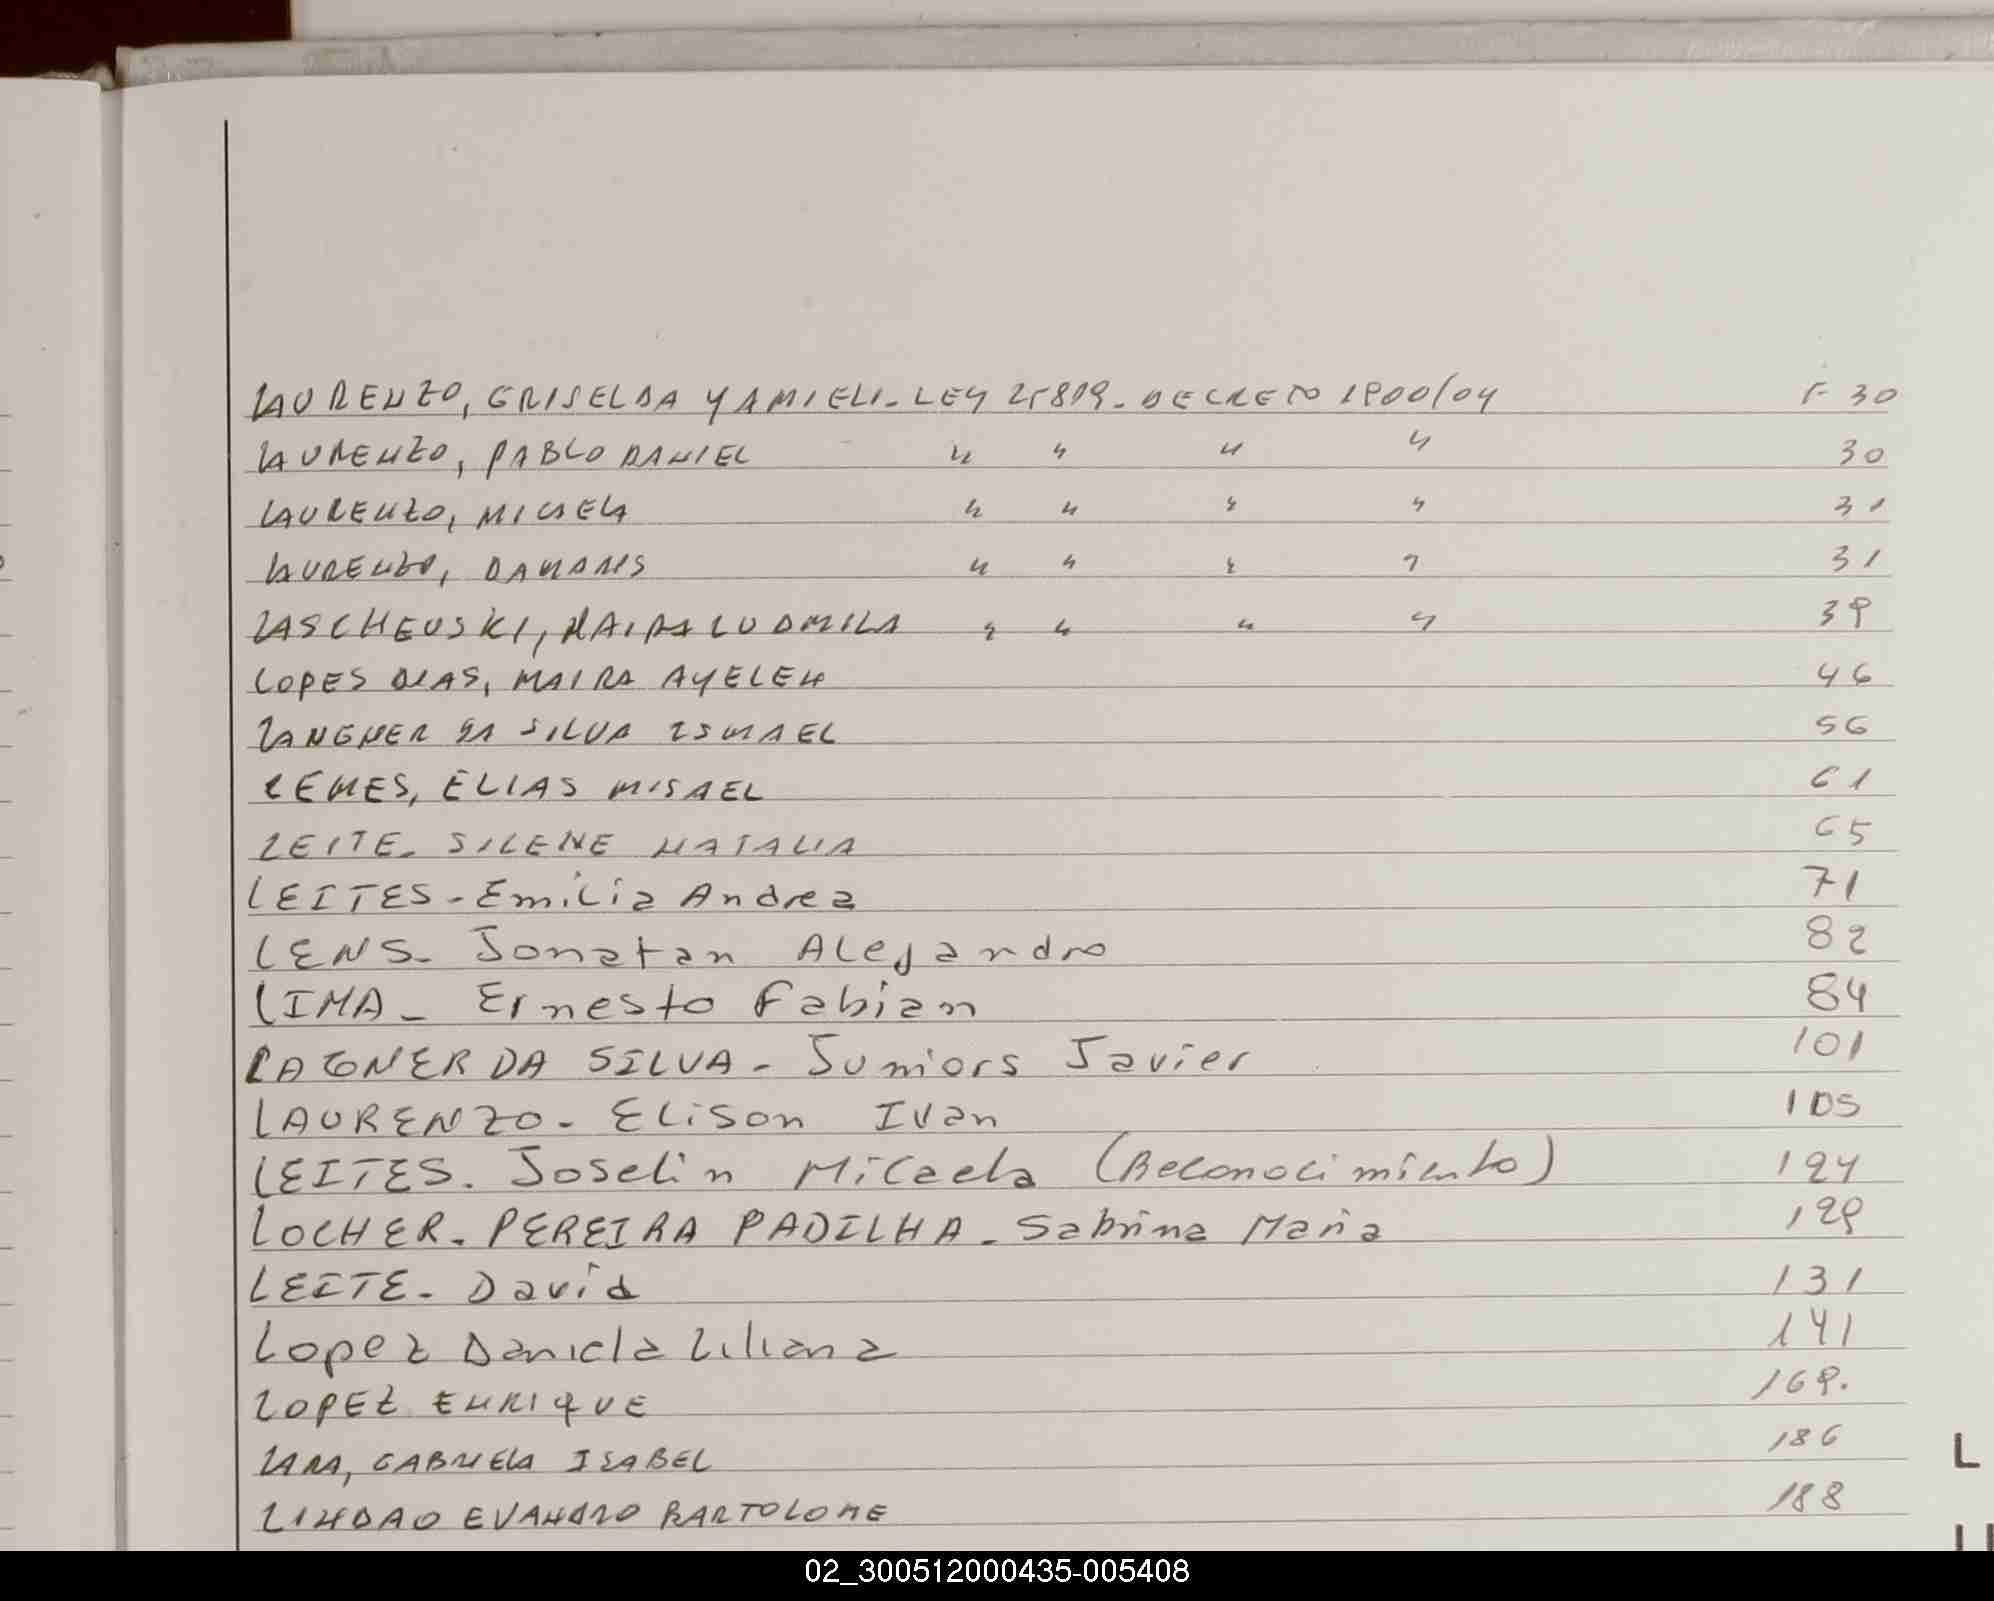 LAURENZO, GRISELDA YAMIELI - LEY 25819 - DECRETO 1800/04 F 30
LAURENZO, PABLO DANIEL " " " " 30
LAURENZO, MICAELA " " " " 31
LAURENZO, DAMARIS " " " " 31
LASCHEUSKI, NAIARA LUDMILA " " " " 39
LOPES DIAS, MAIRA AYELEN 46
LANGNER DA SILVA ISMAEL 56
LEMES, ELIAS MISAEL 61
LEITE - SILENE NATALIA 65
LEITES - Emilia Andrea 71
LENS - Jonatan Alejandro 82
LIMA - Ernesto Fabian 84
LAGNER DA SILVA - Juniors Javier 101
LAURENZO - Elison Ivan 105
LEITES. Joselin Micaela (Reconocimiento) 124
LOCHER - PEREIRA PADILHA - Sabrina Maria 129
LEITE - David 131
Lopez Daniela Liliana 141
LOPEZ ENRIQUE 169.
LARA, GABRIELA ISABEL 186
LINDAO EVANDRO BARTOLOME 188
L
02_300512000435-005408